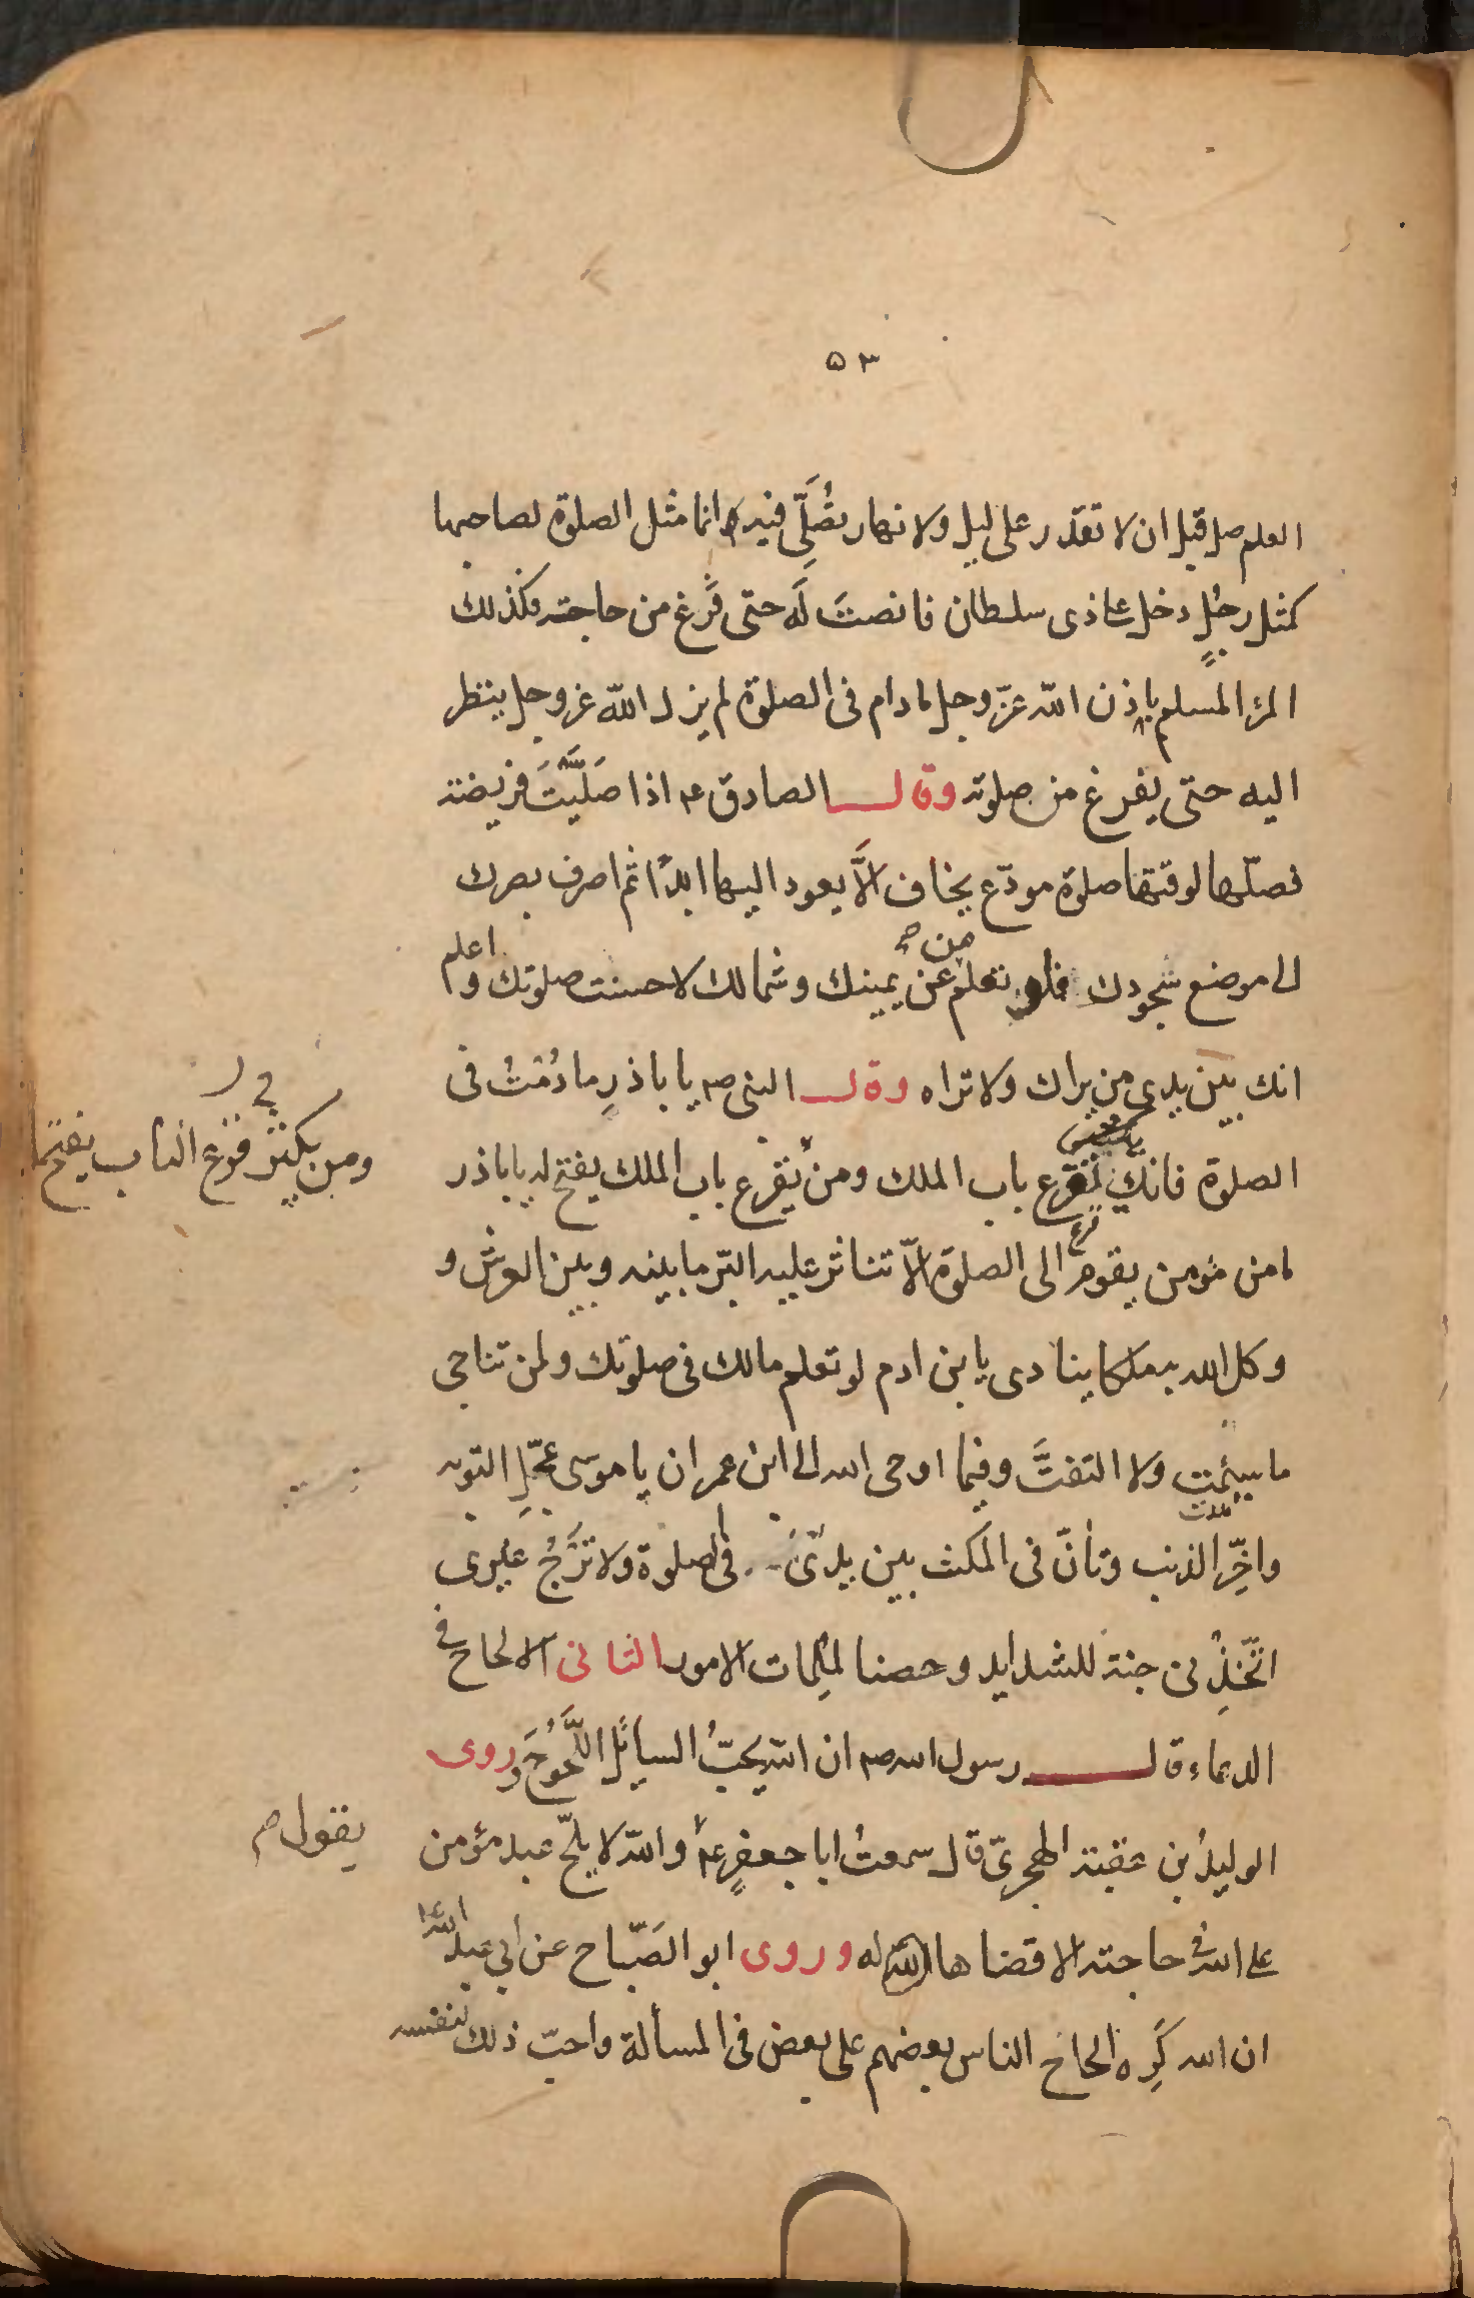 ٥٣
العلم صل قبل ان لا تقدر على ليل ولا نهار تُصَلِّى فيه انما مثل الصلوة لصاحبها
كمثل رجلٍ دخل على ذى سلطان فانصتَ لَه حتى فَرغ من حاجته فكذلك
المرء المسلم باذن الله عزّ وجل مادام فى الصلوة لم يزل الله عز وجل ينظر
اليه حتى يفرغ من صلوته وقال الصادق ع اذا صَلَّيتَ فريضة
فصلّها لوقتها صلوة مودّع يخاف الاَّ يعود اليها ابدًا ثم اصرف بصرك
الى موضع سجودك فلو تعلم من عن يمينك وشمالك لاحسنت صلوتك واعلم
انك بين يدى من يراك ولا تراه وقال النبى ص يا باذرِ ما دُمتُ فى
الصلوة فانك تقرع باب الملك ومن يقرع باب الملك يفتح له يا باذر
ومن يكثر قرع الباب يفتح
ما من مؤمن يقوم الى الصلوة الاّ تناثر عليه البرّ ما بينه وبين العرش و
وكل الله به ملكا ينادى يا بن ادم لو تعلم مالك فى صلوتك ولمن تناجى
ما سئمت ولا التفتَّ وفيما اوحى الله الى ابن عمران يا موسى عجّلِ التوبه
واخِّرِ الذنب وتأنّ فى المكث بين يدىّ فى الصلوة ولا تَرْجُ غيرى
اتّخذِنى جنة للشدايد وحصنا لمُلِمات الامور الثانى الالحاح فى
الدعاء قال رسول الله ص ان الله يحبّ السائل اللَّحُوحَ وروى
الوليدُ بن عقبة الهجرىّ قال سمعتُ ابا جعفرٍ ع والله لا يلحّ عبد مؤمن
يقول
على الله فى حاجته الا قضاها الله له وروى ابو الصَبّاح عن ابى عبد الله ع
ان الله كَرِه الحاح الناس بعضهم على بعض فى المسألة واحبّ ذلك لنفسه